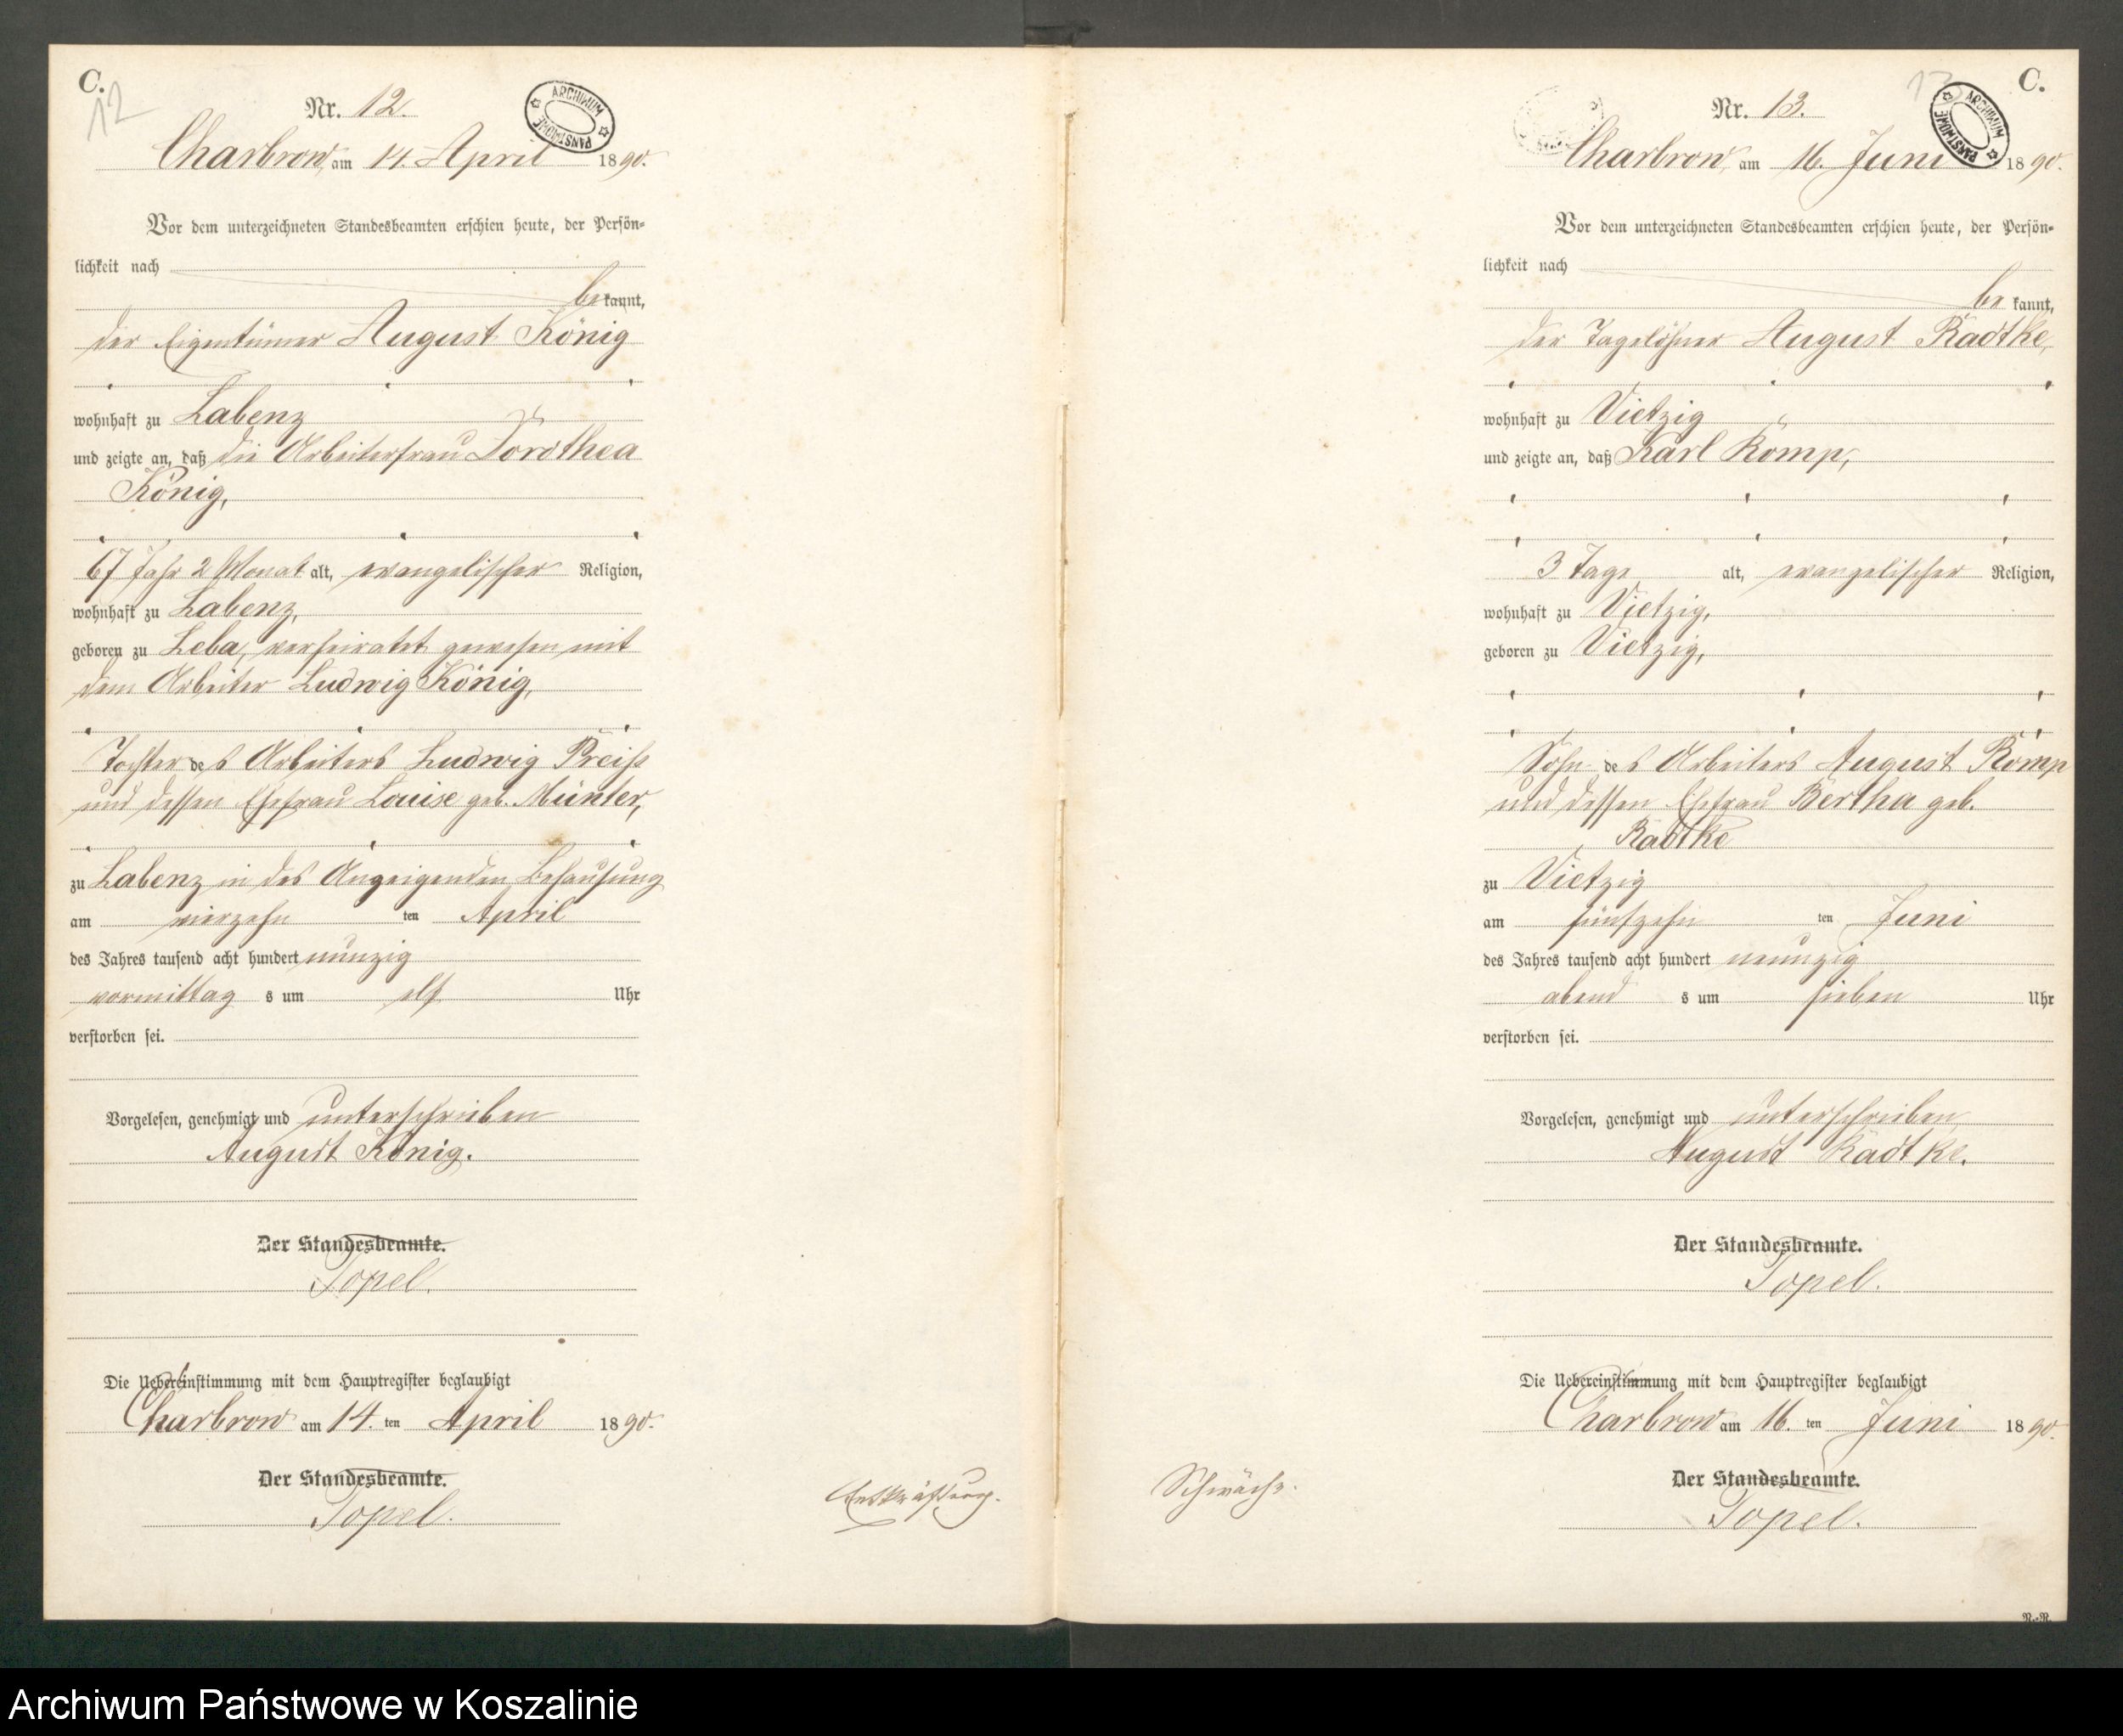 C.
12
Nr. 12.
ARCHIWUM PAŃSTWOWE
Charbrow, am 14. April 1890.
Vor dem unterzeichneten Standesbeamten erschien heute, der Persön-
lichkeit nach
be kannt,
der Eigentümer August König
wohnhaft zu Labenz
und zeigte an, daß die Arbeiterfrau Dorothea
König,
67 Jahr 2 Monat alt, evangelischer Religion,
wohnhaft zu Labenz,
geboren zu Leba, verheiratet gewesen mit
dem Arbeiter Ludwig König,
Tochter des Arbeiters Ludwig Preiß
und dessen Ehefrau Louise geb. Münter,
zu Labenz in des Anzeigenden Behausung
am vierzehn ten April
des Jahres tausend acht hundert neunzig
vormittag s um elf Uhr
verstorben sei.
Vorgelesen, genehmigt und unterschrieben
August König.
Der Standesbeamte.
Topel.
Die Uebereinstimmung mit dem Hauptregister beglaubigt
Charbrow am 14. ten April 1890.
Der Standesbeamte.
Topel.
Entkräftung.
13
C.
Nr. 13.
ARCHIWUM PAŃSTWOWE
Charbrow, am 16. Juni 1890.
Vor dem unterzeichneten Standesbeamten erschien heute, der Persön-
lichkeit nach
be kannt,
der Tagelöhner August Radtke,
wohnhaft zu Vietzig
und zeigte an, daß Karl Komp,
3 Tage alt, evangelischer Religion,
wohnhaft zu Vietzig,
geboren zu Vietzig,
Sohn des Arbeiters August Komp
und dessen Ehefrau Bertha geb.
Radtke
zu Vietzig
am fünfzehn ten Juni
des Jahres tausend acht hundert neunzig
abend s um sieben Uhr
verstorben sei.
Vorgelesen, genehmigt und unterschrieben
August Radtke.
Der Standesbeamte.
Topel.
Die Uebereinstimmung mit dem Hauptregister beglaubigt
Charbrow am 16. ten Juni 1890.
Der Standesbeamte.
Topel.
Schwäche.
R.-R.
Archiwum Państwowe w Koszalinie